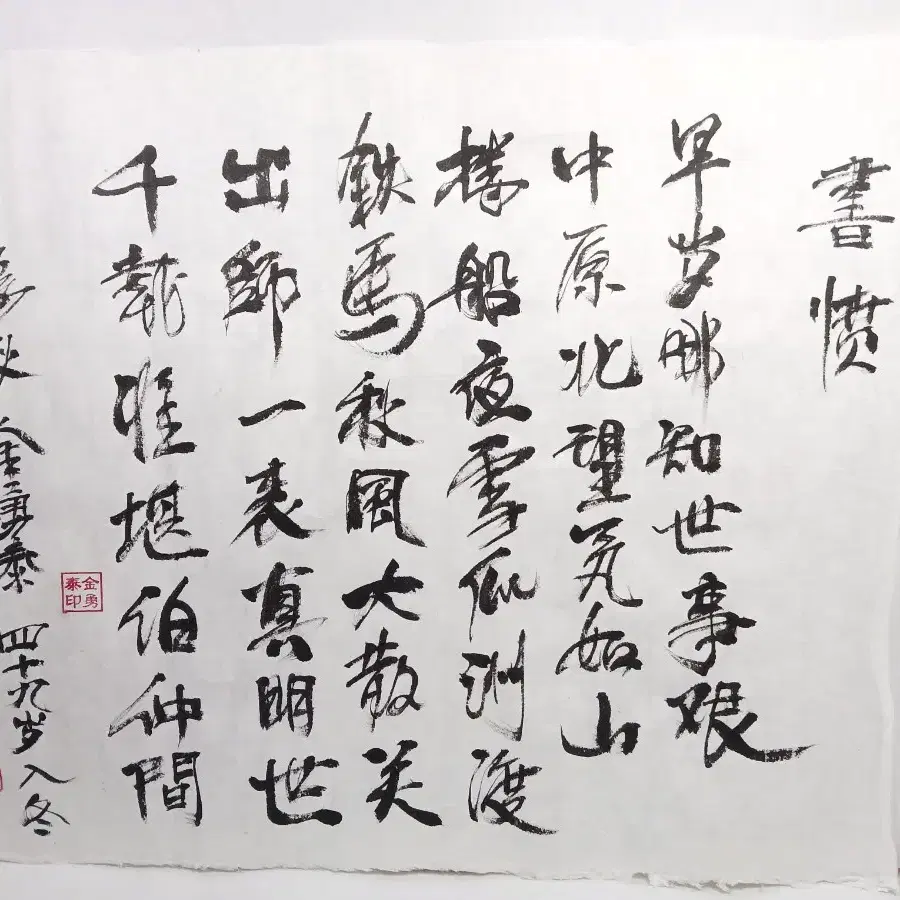 書愤
早岁哪知世事艰
中原北望气如山
楼船夜雪瓜洲渡
鉄馬秋風大散关
出師一表真明世
千載谁堪伯仲間
秋 金勇泰 四十九岁入冬
金勇泰印